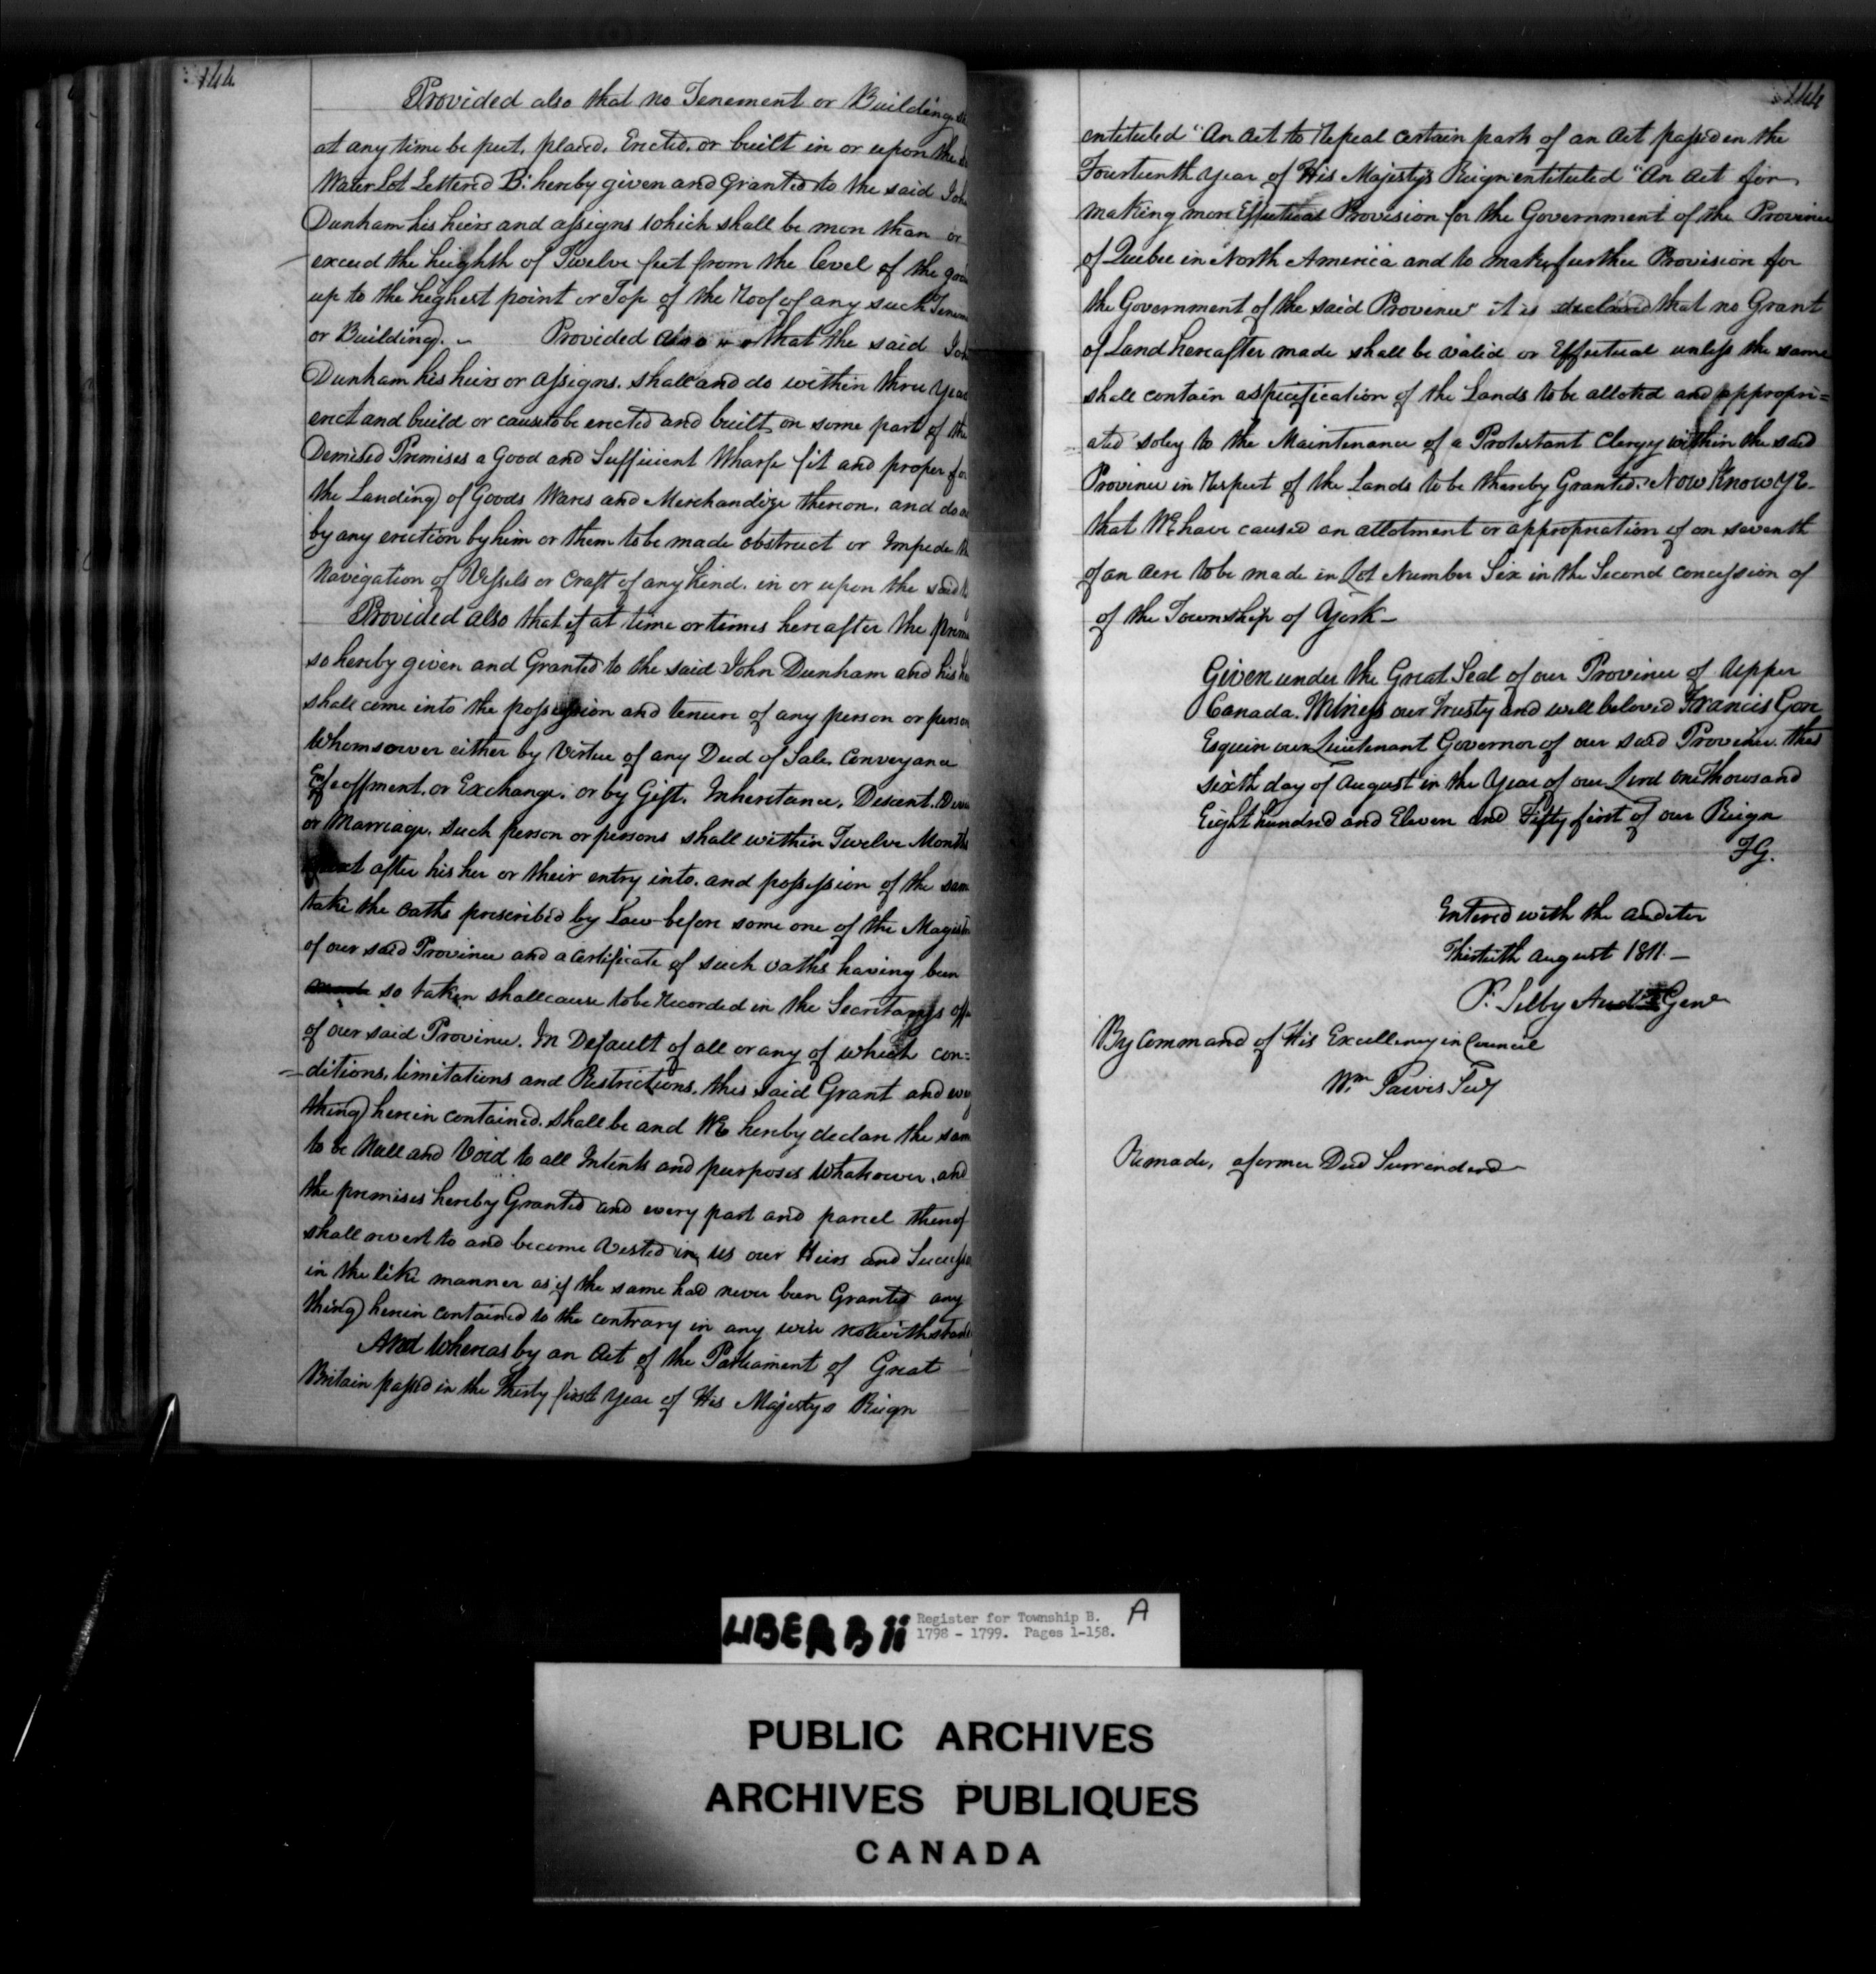 144
Provided also that no Tenement or Building
at any time be put, placed, Erected, or built in or upon the
Water Lot Lettered B. hereby given and Granted to the said
Dunham his heirs and assigns which shall be more than or
exceed the heighth of Twelve feet from the level of the
up to the highest point or Top of the Roof of any such
or Building. Provided also that the said
Dunham his heirs or assigns. shall and do within three
erect and build or cause to be erected and built on some part of the
Demised Premises a Good and Sufficient Wharfe fit and proper for
the Landing of Goods Wares and Merchandize thereon. and do
by any erection by him or them to be made obstruct or Impede
Navigation of Vessels or Craft of any Kind. in or upon the said
Provided also that if at time or times hereafter the
so hereby given and Granted to the said John Dunham and his
shall come into the possession and tenure of any person or
Whomsoever either by Virtue of any Deed of Sale, Conveyance
Enfeoffment, or Exchange, or by Gift, Inheritance, Descent,
or Marriage, such person or persons shall within Twelve Months
next after his her or their entry into, and possession of the
take the oaths prescribed by Law before some one of the
of our said Province and a certificate of such oaths having been
so taken shall cause to be Recorded in the Secretarys
of our said Province. In Default of all or any of which con=
=ditions, limitations and Restrictions, this said Grant and
thing herein contained, shall be and We hereby declare the
to be Null and Void to all Intents and purposes Whatsoever, and
the premises hereby Granted and every part and parcel thereof
shall revert to and become Vested in us our Heirs and
in the like manner as if the same had never been Granted any
thing herein contained to the contrary in any wise
And Whereas by an Act of the Parliament of Great
Britain passed in the Thirty first Year of His Majestys Reign
144
entituled "An Act to Repeal certain parts of an Act passed in the
Fourteenth Year of His Majestys Reign entituled "An Act for
making more Effectual Provision for the Government of the Province
of Quebec in North America and to make further Provision for
the Government of the said Province" it is declared that no Grant
of Land hereafter made shall be valid or Effectual unless the same
shall contain a specification of the Lands to be alloted and appropri=
ated soley to the Maintenance of a Protestant Clergy within the said
Province in Respect of the Lands to be thereby Granted. Now Know Ye
that We have caused an allotment or appropriation of on seventh
of an acre to be made in Lot Number Six in the Second concession of
of the Township of York
Given under the Great Seal of our Province of Upper
Canada. Witness our Trusty and well beloved Francis Gore
Esquire our Lieutenant Governor of our said Province this
sixth day of August in the Year of our Lord one Thousand
Eight hundred and Eleven and Fifty first of our Reign
FG.
Entered with the auditer
Thirtieth August 1811.
P. Selby Gen
By Command of His Excellency in Council
Wm Jarvis Secy
Remade, a former Deed Surrendered
LIBER B ii
Register for Township B. A
1798 - 1799. Pages 1-158.
PUBLIC ARCHIVES
ARCHIVES PUBLIQUES
CANADA